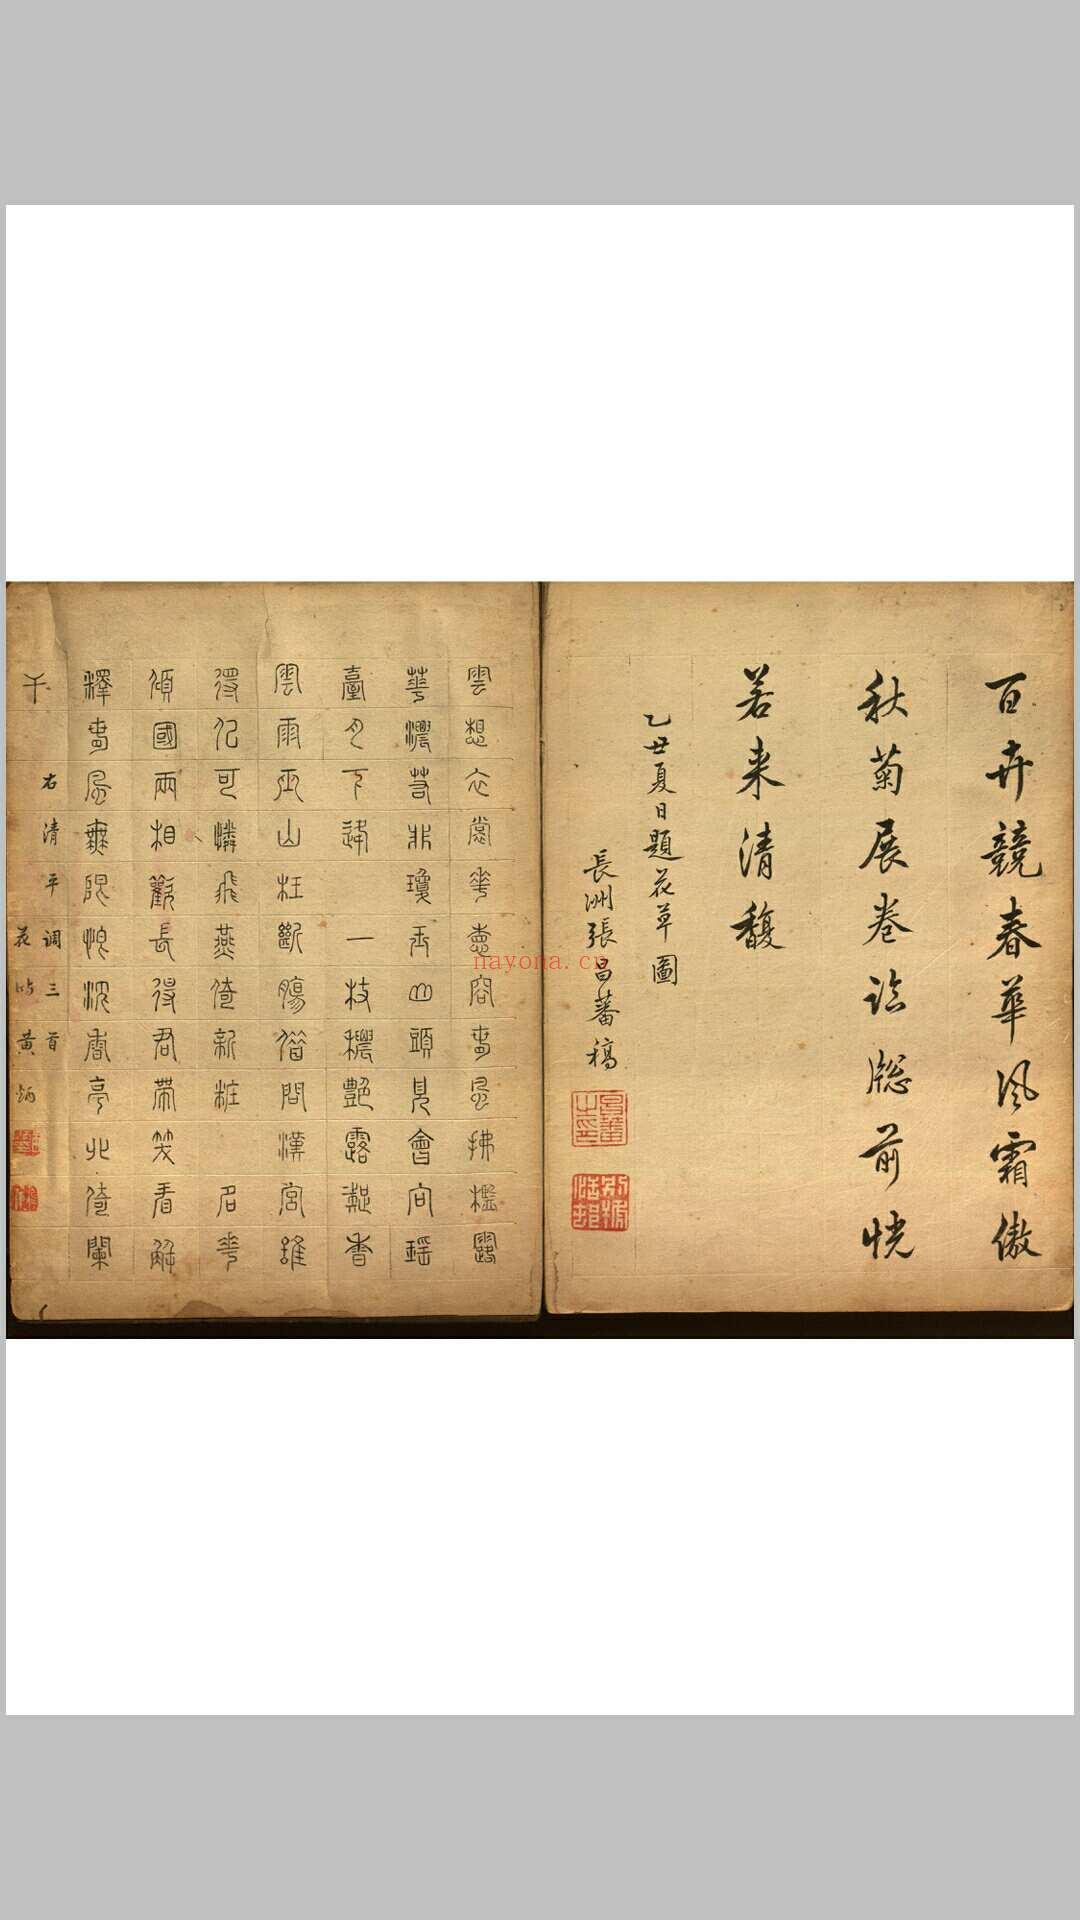 百卉競春華風霜傲
秋菊展卷臨牕前恍
若来清馥
乙丑夏日題花草圖
長洲張昌蕃稿
昌蕃之印
別號恬邨
雲想衣裳花想容春風拂檻露
華濃若非瓊玉山頭見會向瑤
臺月下逢 一枝穠艷露凝香
雲雨巫山枉斷腸借問漢宮誰
得似可憐飛燕倚新粧 名花
傾國兩相歡長得君帶笑看解
釋春風無限恨沈香亭北倚闌
干
右清平调三首
黄炳
nayona.cn